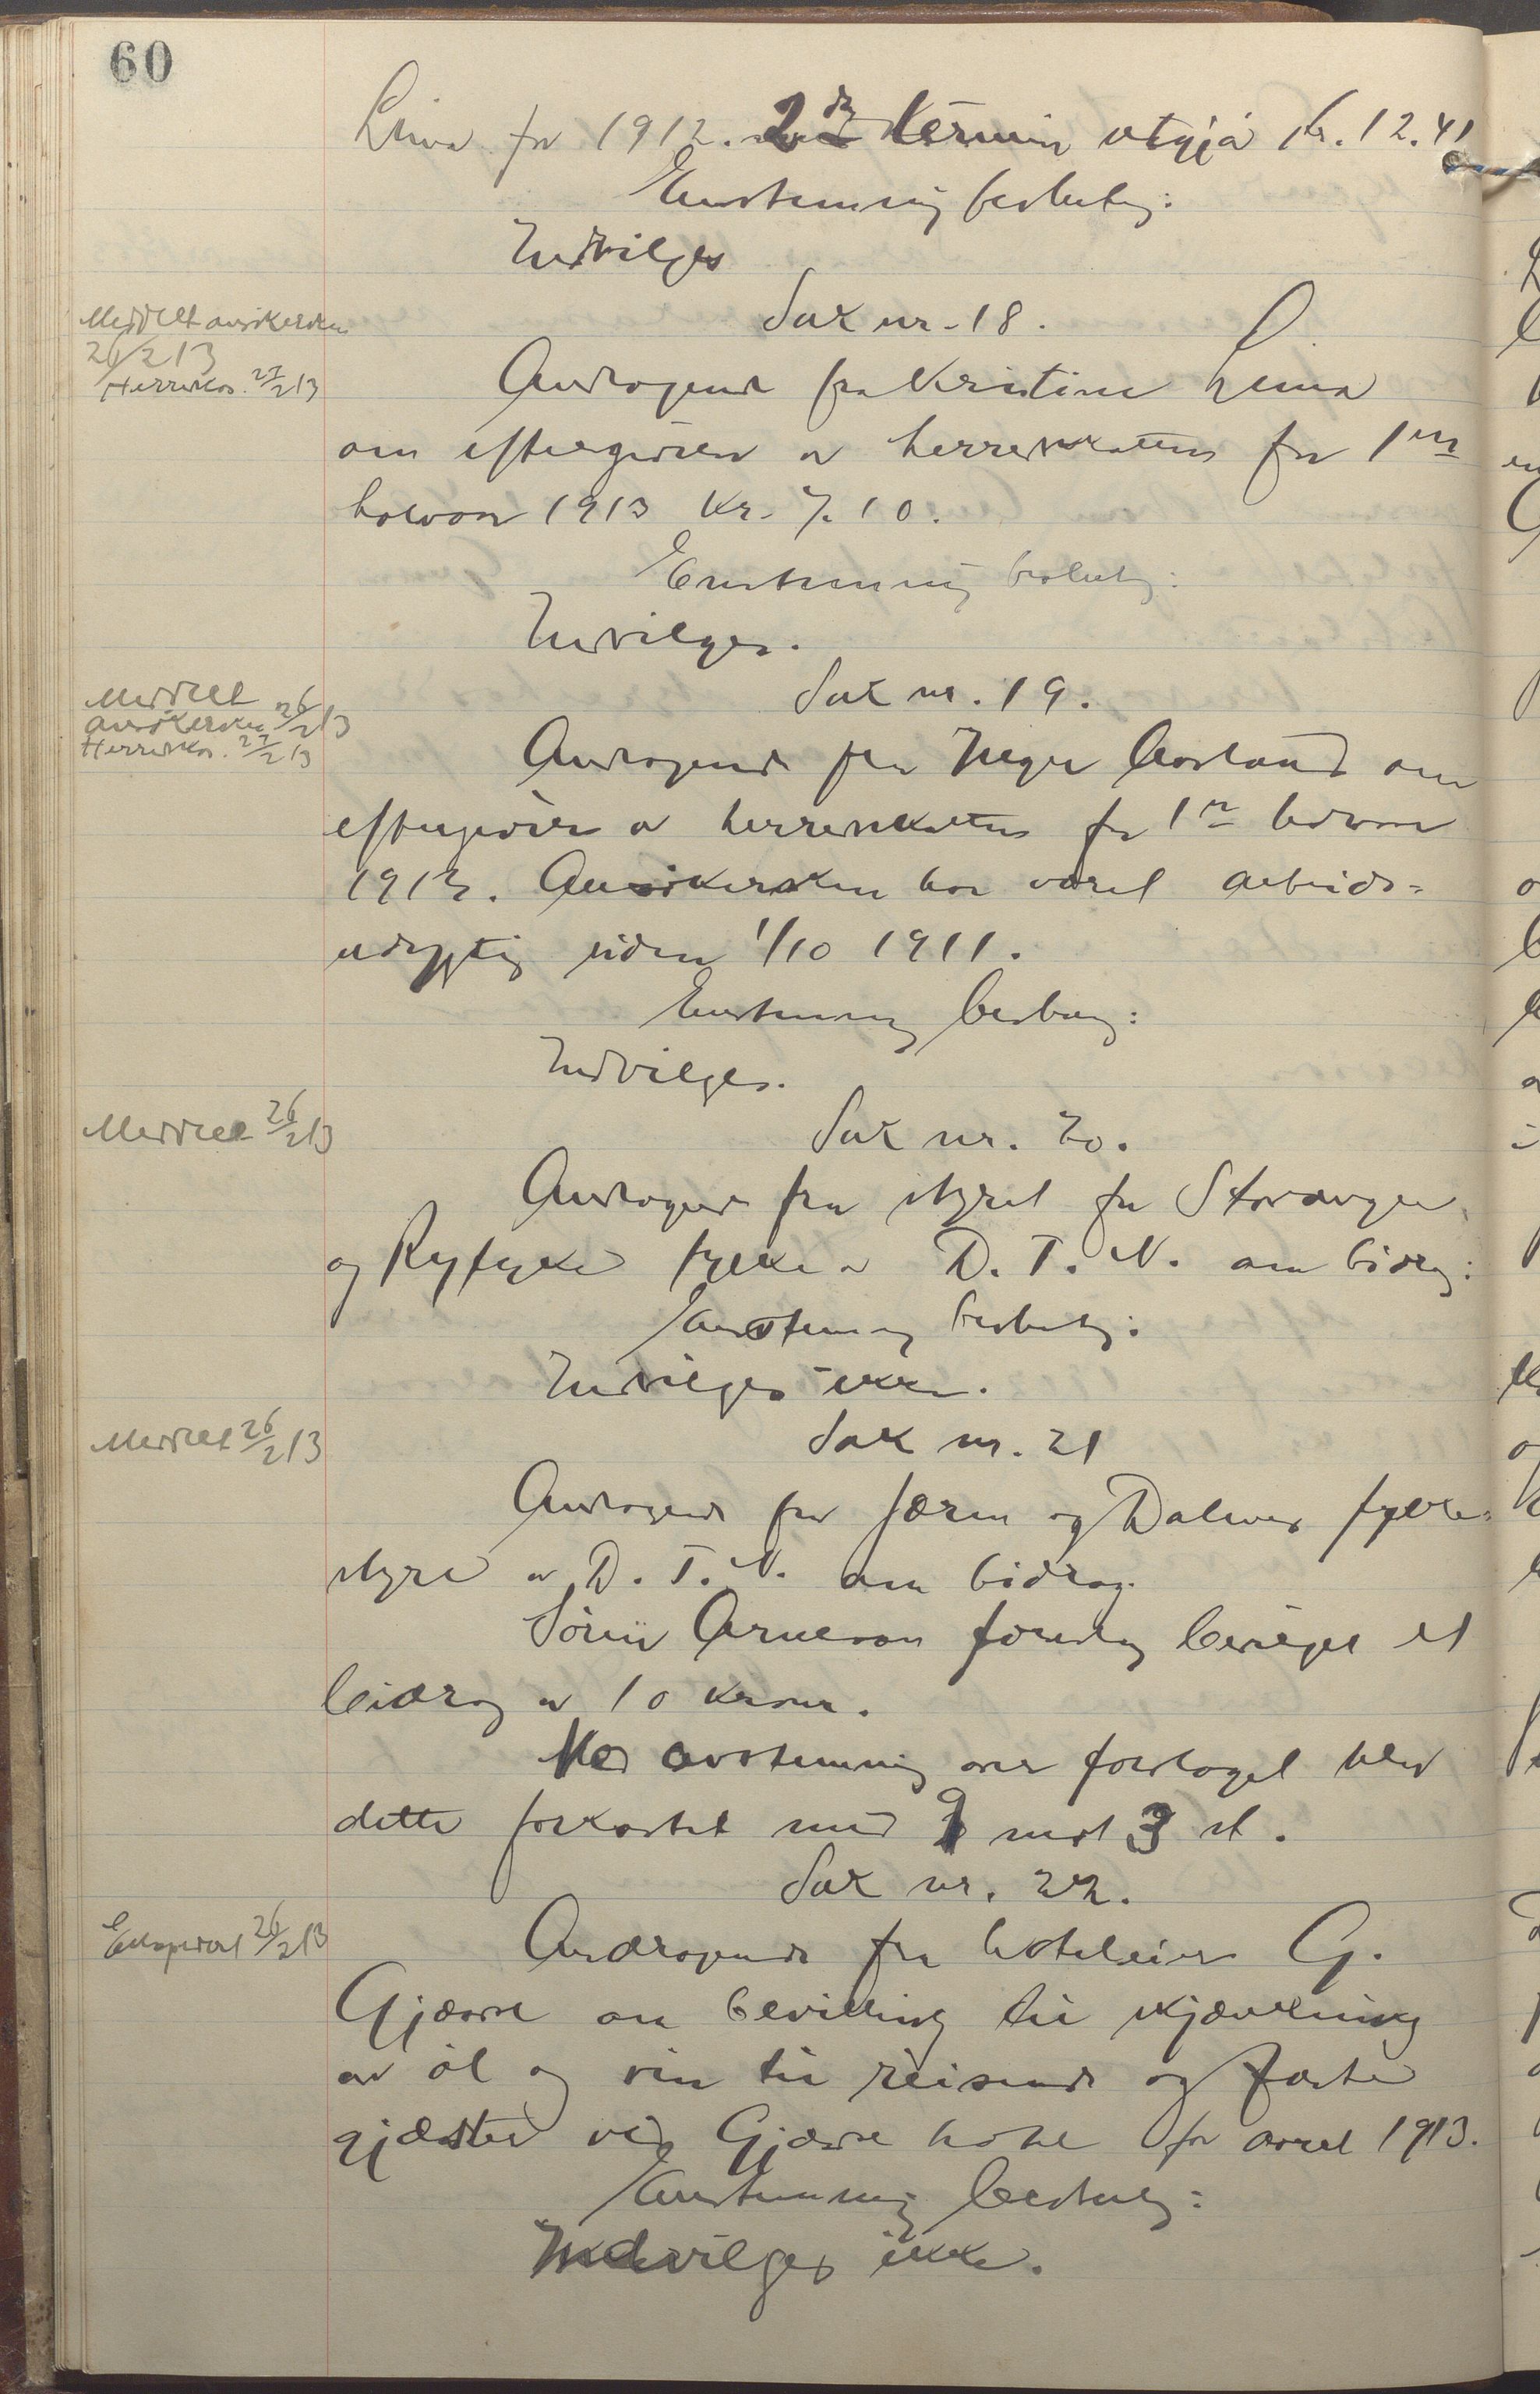 60
Lima for 1912. 2den termin utgjø kr. 12.41
Enstemmig beslutn.:
Indvilges
Sak nr. 18.
Meddelt ansökersken
26/2 13
Herredskas. 27/2 13
Andragende fra Kristine Lima
om eftergivelse av herredskatten for 1ste
halvaar 1913 kr. 7.10.
Enstemmig beslutn.:
Indvilges.
Sak nr. 19.
Meddelt
ansökersken 26/2 13
Herredskas. 27/2 13
Andragende fra Inger Aarland om
eftergivelse av herredskatten for 1ste halvaar
1913. Ansökersken har været arbeids-
udygtig siden 1/10 1911.
Enstemmig beslutn.:
Indvilges.
Meddelt 26/2 13
Sak nr. 20.
Andragende fra styret for Stavanger
og Ryfylke fylke av D. T. N. om bidrag:
Enstemmig beslutn.:
Indvilges ikke.
Meddelt 26/2 13
Sak nr. 21
Andragende fra Jæren og Dalenes fylke-
styre av D. T. N. om bidrag.
Sören Arneson foreslog bevilget et
bidrag av 10 kroner.
Ved avstemning over forslaget blev
dette forkastet med 9 mot 3 st.
Sak nr. 22.
Ekspedert 26/2 13
Andragende fra hoteleier G.
Gjæsse om bevilling til skjænkning
av öl og vin til reisende og faste
gjæster ved Gjæsse hotel for aaret 1913.
Enstemmig beslutn.:
Indvilges ikke.